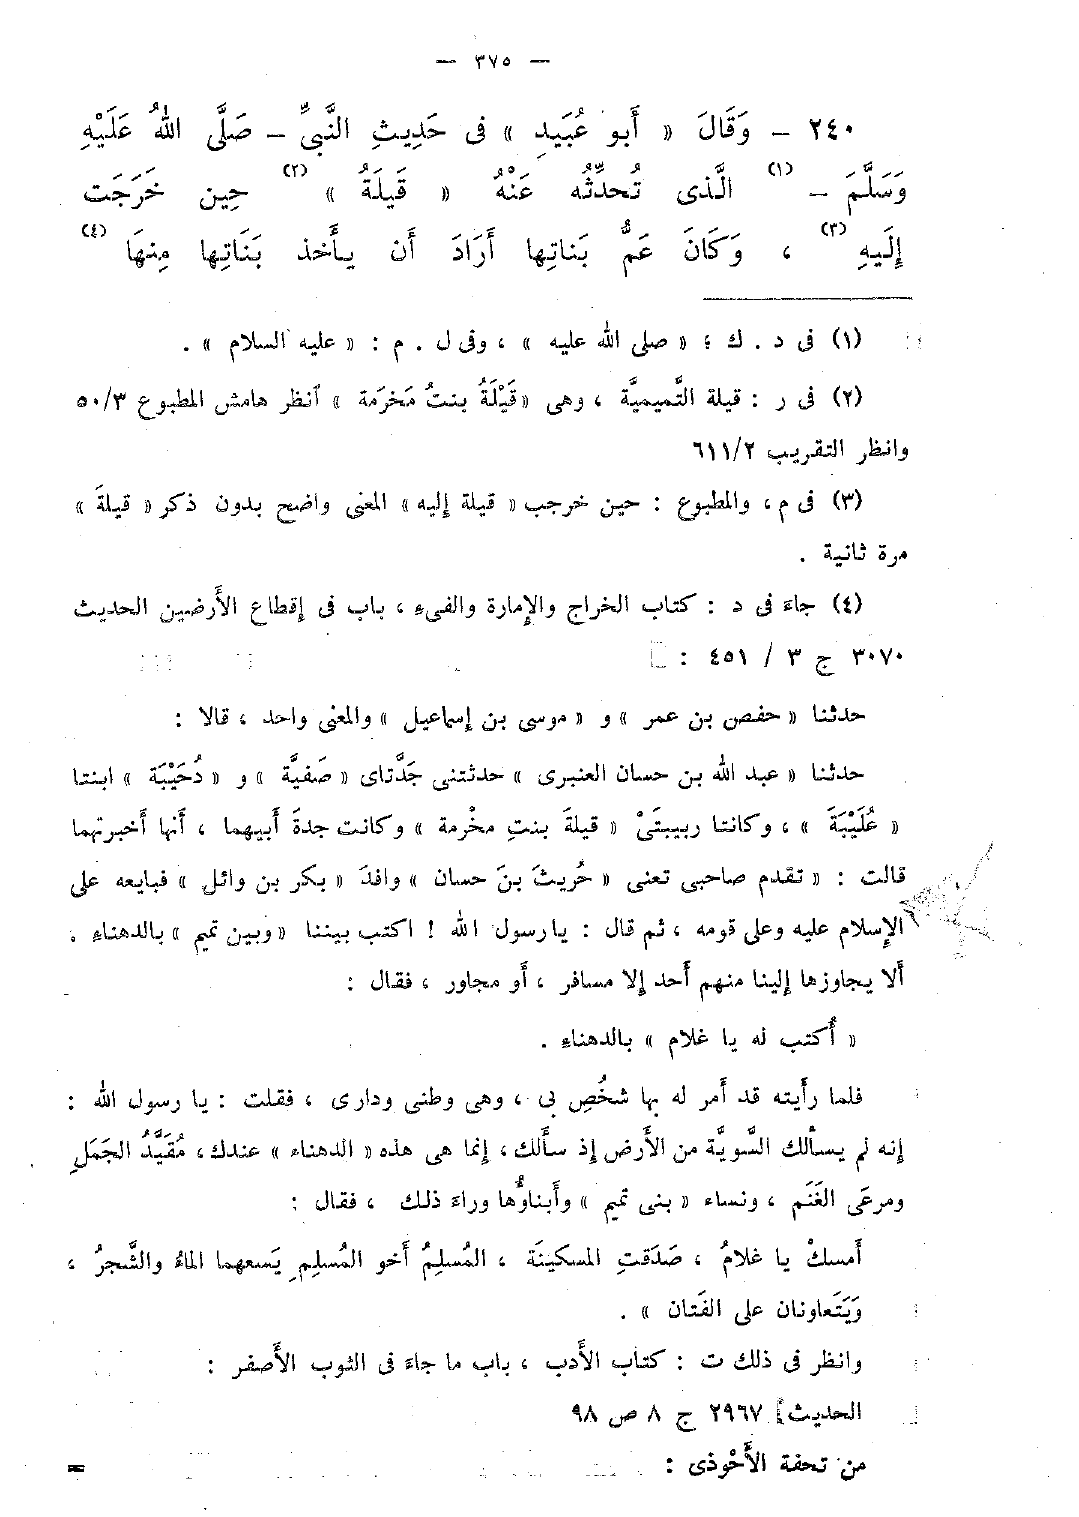 — ٣٧٥ —
٢٤٠ – وَقَالَ « أَبو عُبَيدِ » فى حَدِيثِ النَّبىِّ – صَلَّى اللهُ عَلَيْهِ
وَسَلَّمَ – (١) الَّذى تُحدِّثُه عَنْهُ « قَيلَةُ » (٢) حِين خَرَجَت
إِلَيهِ (٣) ، وَكَانَ عَمُّ بَناتِها أَرَادَ أَن يأَخذ بَنَاتِها مِنهَا (٤)
(١) فى د . ك ؛ « صلى الله عليه » ، وفى ل . م : « عليه السلام » .
(٢) فى ر : قيلة التَّميميَّة ، وهى « قَيْلَةُ بنتُ مَخرَمة » انظر هامش المطبوع ٥٠/٣
وانظر التقريب ٦١١/٢
(٣) فى م ، والمطبوع : حين خرجب « قيلة إليه » المعنى واضح بدون ذكر « قيلةَ »
مرة ثانية .
(٤) جاءَ فى د : كتاب الخراج والإِمارة والفىءِ ، باب فى إقطاع الأَرضين الحديث
٣٠٧٠ ج ٣ / ٤٥١ :
حدثنا « حفص بن عمر » و « موسى بن إسماعيل » والمعنى واحد ، قالا :
حدثنا « عبد الله بن حسان العنبرى » حدثتنى جَدَّتاى « صَفيَّة » و « دُحَيْبَة » ابنتا
« عُلَيْبَةَ » ، وكانتا ربيبتَىْ « قيلةَ بنتِ مخْرمة » وكانت جدةَ أَبيهما ، أَنها أَخبرتهما
قالت : « تقدم صاحبى تعنى « حُريثَ بنَ حسان » وافدَ « بكر بن وائل » فبايعه على
الإِسلام عليه وعلى قومه ، ثم قال : يا رسول الله ! اكتب بيننا « وبين تميم » بالدهناءِ .
أَلا يجاوزها إِلينا منهم أَحد إِلا مسافر ، أَو مجاور ، فقال :
« أُكتب له يا غلام » بالدهناءِ .
فلما رأَيته قد أَمر له بها شخُصِ بى ، وهى وطنى ودارى ، فقلت : يا رسول الله :
إنه لم يسأَلك السَّويَّة من الأَرض إذ سأَلك ، إِنما هى هذه « الدهناء » عندك ، مُقَيَّدُ الجَمَلِ
ومرعَى الغَنَم ، ونساء « بنى تميم » وأَبناؤُها وراءَ ذلك ، فقال :
أَمسكْ يا غلامُ ، صَدَقتِ المسكينَة ، المُسلِمُ أَخو المُسلِمِ يَسعهما الماءُ والشَّجرُ ،
وَيَتَعاونان على الفَتان » .
وانظر فى ذلك ت : كتاب الأَدب ، باب ما جاءَ فى الثوب الأَصفر :
الحديث ٢٩٦٧ ج ٨ ص ٩٨
من تحفة الأَحْوذى :
=